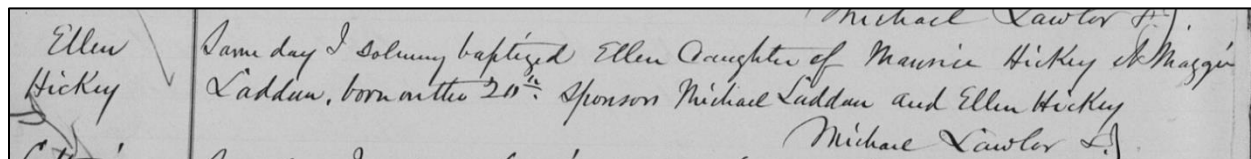 Michael Lawlor
Ellen Same day I solemny baptized Ellen daughter of Maurice Hickey & Maggie
Hickey Laddan, born on the 20th. Sponsors Michael Laddan and Ellen Hickey
Michael Lawlor